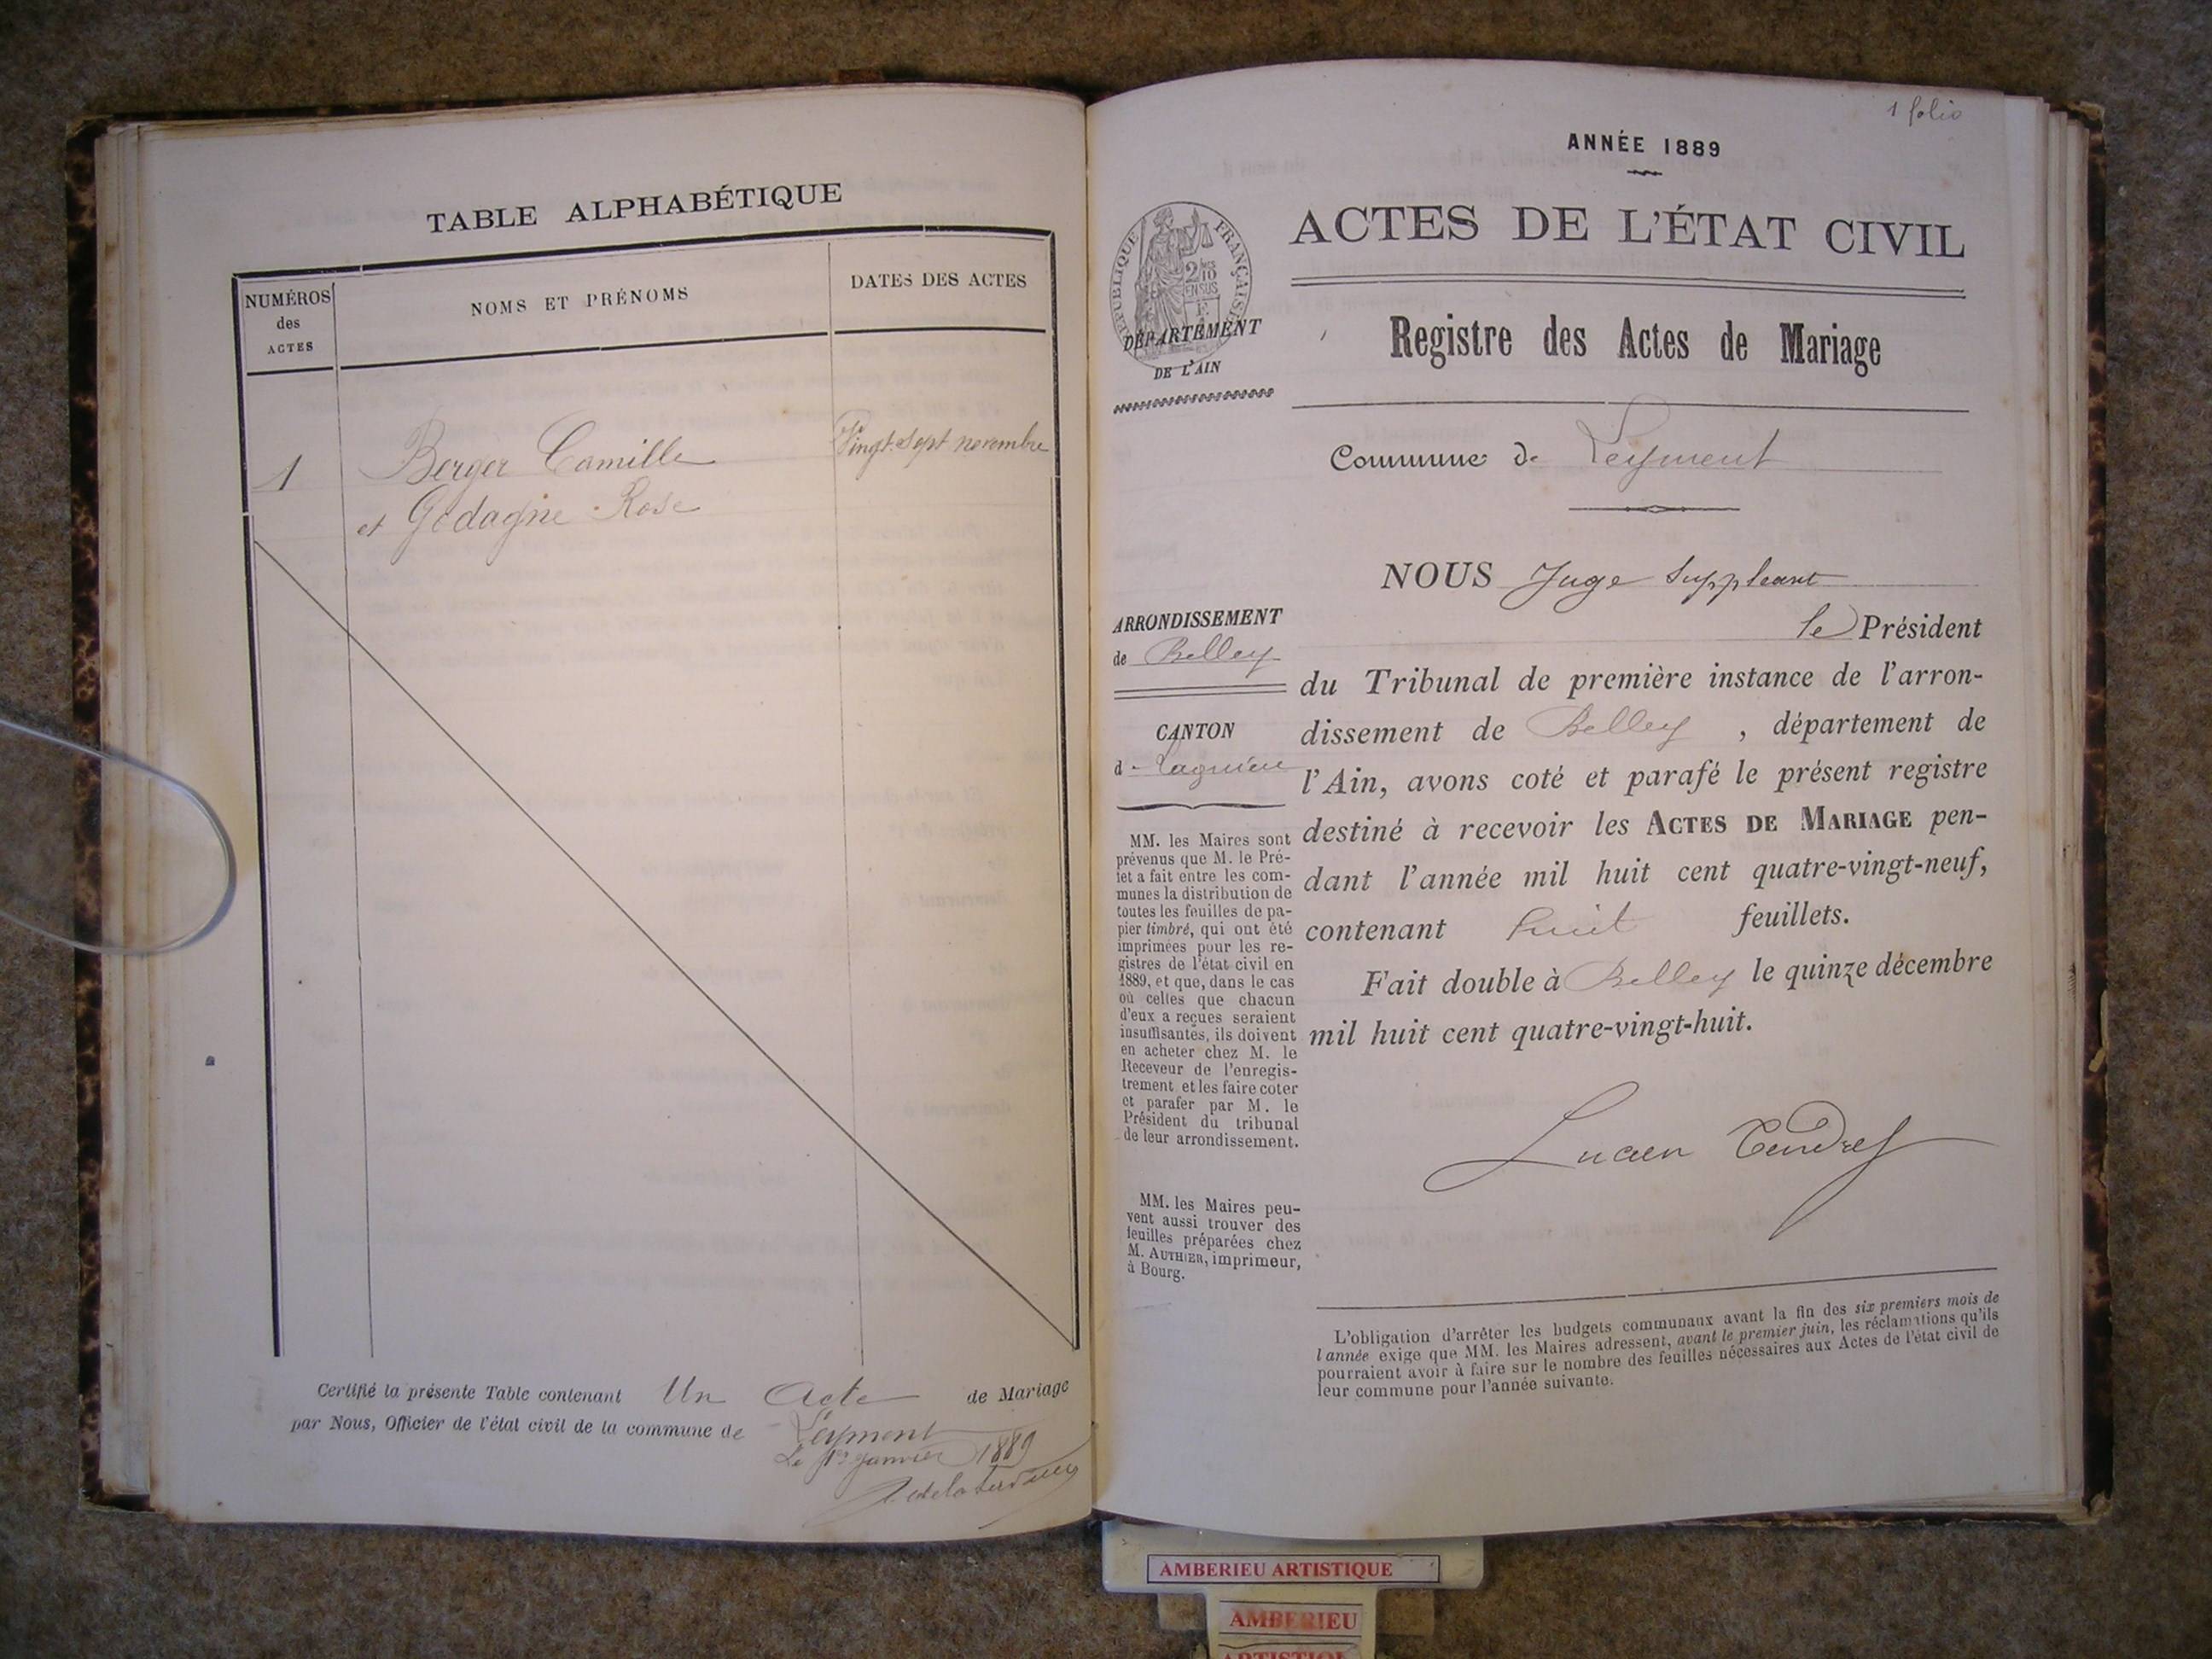 TABLE ALPHABÉTIQUE
NUMÉROS
des
ACTES
NOMS ET PRÉNOMS
DATES DES ACTES
1
Berger Camille
Vingt-Sept novembre
et Godagne Rose
Certifié la présente Table contenant Un Acte de Mariage
par Nous, Officier de l'état civil de la commune de Leyment
Le 1er janvier 1889
1 folio
ANNÉE 1889
ACTES DE L'ÉTAT CIVIL
RÉPUBLIQUE FRANÇAISE
2/10
EN SUS
DÉPARTEMENT
DE L'AIN
Registre des Actes de Mariage
Commune de Leyment
NOUS Juge Suppléant
le Président
ARRONDISSEMENT
de Belley
CANTON
d Lagnieu
du Tribunal de première instance de l'arron-
dissement de Belley, département de
l'Ain, avons coté et parafé le présent registre
destiné à recevoir les ACTES DE MARIAGE pen-
dant l'année mil huit cent quatre-vingt-neuf,
contenant huit feuillets.
Fait double à Belley le quinze décembre
mil huit cent quatre-vingt-huit.
Lucien
MM. les Maires sont
prévenus que M. le Pré-
fet a fait entre les com-
munes la distribution de
toutes les feuilles de pa-
pier timbré, qui ont été
imprimées pour les re-
gistres de l'état civil en
1889, et que, dans le cas
où celles que chacun
d'eux a reçues seraient
insuffisantes, ils doivent
en acheter chez M. le
Receveur de l'enregis-
trement et les faire coter
et parafer par M. le
Président du tribunal
de leur arrondissement.
MM. les Maires peu-
vent aussi trouver des
feuilles préparées chez
M. AUTHIER, imprimeur,
à Bourg.
L'obligation d'arrêter les budgets communaux avant la fin des six premiers mois de
l'année exige que MM. les Maires adressent, avant le premier juin, les réclamations qu'ils
pourraient avoir à faire sur le nombre des feuilles nécessaires aux Actes de l'état civil de
leur commune pour l'année suivante.
AMBERIEU ARTISTIQUE
AMBERIEU